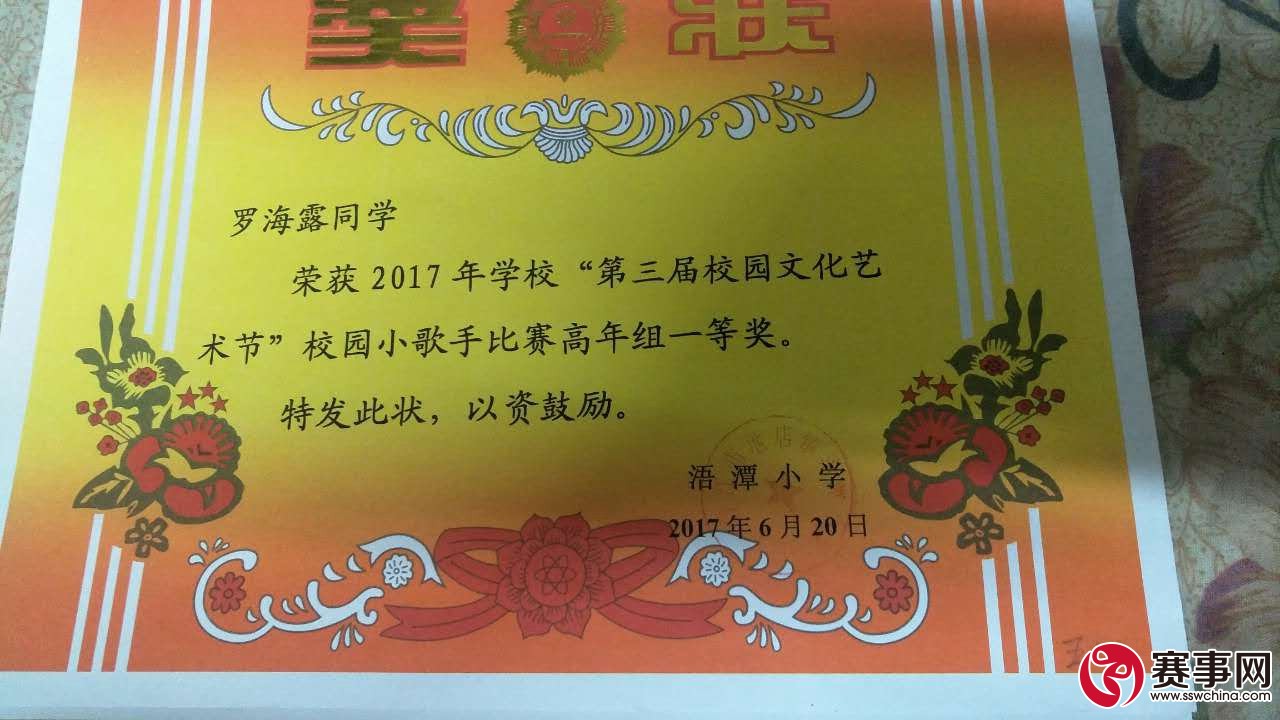 奖状
罗海露同学
荣获 2017 年学校“第三届校园文化艺
术节”校园小歌手比赛高年组一等奖。
特发此状，以资鼓励。
浯潭小学
2017 年 6 月 20 日
赛事网
www.sswchina.com